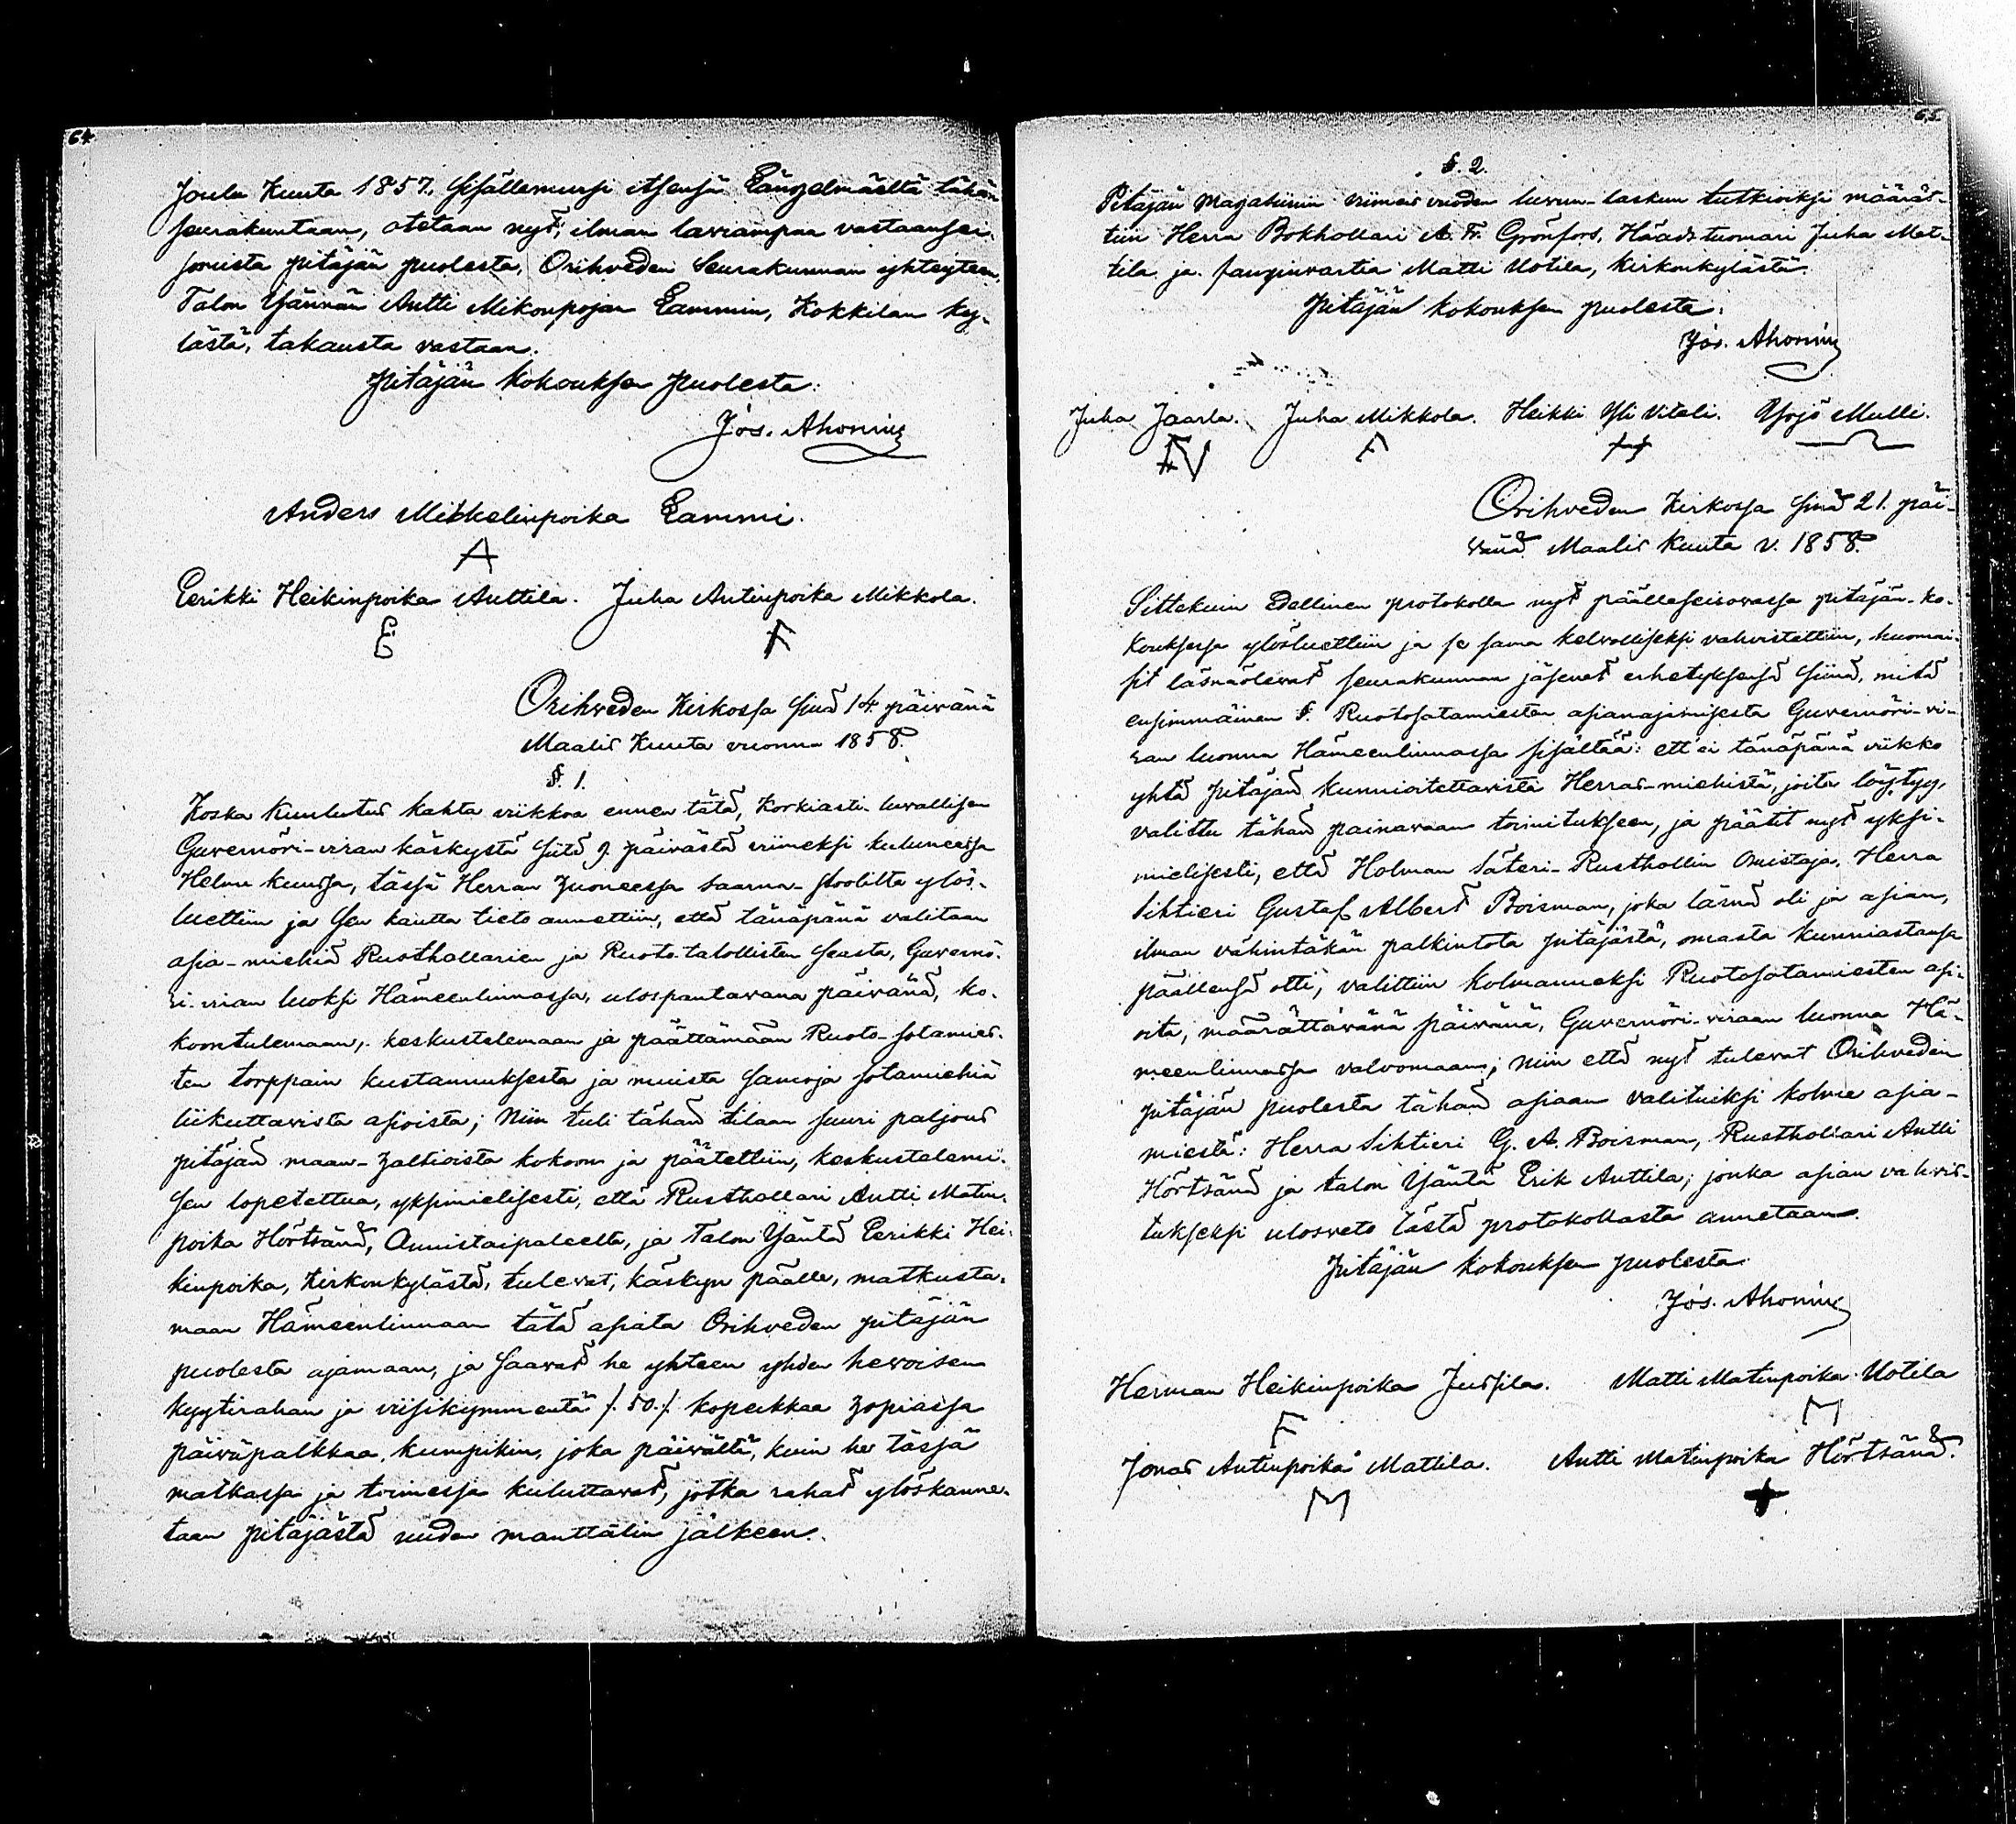 64.
Joulu Kuuta 1857, sisällemuuti itsensä Längelmäeltä tähän
seurakuntaan, otetaan nyt, ilman laviampaa vastaansei-
somista pitäjän puolesta, Orihveden Seurakunnan yhteyteen,
Talon Isännän Antti Mikonpojan Lammin, Kokkilan ky-
lästä, takausta vastaan.
Pitäjän kokouksen puolesta:
Jos. Ahonius
Anders Mikkelinpoika Lammi.
A
Eerikki Heikinpoika Anttila. Juha Antinpoika Mikkola.
Orihveden Kirkossa sinä 14 päivänä
Maalis Kuuta vuonna 1858.
§. 1.
Koska kuulutus kahta viikkoa ennen tätä, Korkiasti-luvallisen
Guvernöri-viran käskystä siitä 9. päivästä viimeksi kuluneessa
Helmi kuussa, tässä Herran Huoneessa saarna-stoolilta ylös-
luettiin ja sen kautta tieto annettiin, että tänäpänä valitaan
asia-miehiä Rusthollarien ja Ruoto-talollisten seasta, Guvernö-
ri-viran luoksi Hämeenlinnassa, ulospantavana päivänä, ko-
koontulemaan, keskustelemaan ja päättämään Ruoto-sotamies-
ten torppain kustannuksesta ja muista samoja sotamiehiä
liikuttavista asioista; Niin tuli tähän tilaan suuri paljous
pitäjän maan-haltioista kokoon ja päätettiin, keskustelemi-
sen lopetettua, yksimielisesti, että Rusthollari Antti Matin-
poika Hörtsänä, Onnistaipaleelta, ja Talon Isäntä Eerikki Hei-
kinpoika, Kirkonkylästä, tulevat, käskyn päälle, matkusta-
maan Hämeenlinnaan tätä asiata Orihveden pitäjän
puolesta ajamaan, ja saavat he yhteen yhden hevoisen
kyytirahan ja viisikymmentä /. 50./. kopeekkaa hopiassa
päiväpalkkaa, kumpikin, joka päivältä, kuin he tässä
matkassa ja toimessa kuluttavat, jotka rahat ylöskanne-
taan pitäjästä uuden manttalin jälkeen.
65.
§. 2.
Pitäjän Magasiinin viimeis vuoden luvun-laskun tutkioiksi määrät-
tiin Herra Bokhollari A. Fr. Grönfors, Häads-tuomari Juha Mat-
tila ja fanginvartia Matti Uotila, Kirkonkylästä.
Pitäjän kokouksen puolesta:
Jos. Ahonius
Juha Jaarla. Juha Mikkola. Heikki Yli Vitali. Yrjö Mulli.
Orihveden Kirkossa sinä 21. päi-
vänä Maalis Kuuta v. 1858.
Sittekuin edellinen protokolla nyt päälleseisovassa pitäjän-ko-
kouksessa ylösluettiin ja se sama kelvolliseksi vahvistettiin, huomai-
sit läsnäolevat seurakunnan jäsenet erhetyksensä siinä, mitä
ensimmäinen §. Ruotosotamiesten asianajamisesta Guvernöri-vi-
ran luonna Hämeenlinnassa sisältää: ett'ei tänäpänä viikko
yhtä pitäjän kunnioitettavista Herras-miehistä, joita löytyy,
valittu tähän painavaan toimitukseen, ja päätit nyt yksi-
mielisesti, että Holman Säteri-Rusthollin omistaja, Herra
Sihtieri Gustaf Albert Boisman, joka läsnä oli ja asian,
ilman vähintäkän palkintota pitäjästä, omasta kunniastansa
päällensä otti, valittiin kolmanneksi Ruotosotamiesten asi-
oita, määrättävänä päivänä, Guvernöri-viraan luonna Hä-
meenlinnassa valvomaan; niin että nyt tulevat Orihveden
pitäjän puolesta tähän asiaan valituiksi kolme asia-
miestä: Herra Sihtieri G. A. Boisman, Rusthollari Antti
Hörtsänä ja talon Isäntä Erik Anttila; jonka asian vahvis-
tukseksi ulosveto tästä protokollasta annetaan.
Pitäjän kokouksen puolesta
Jos. Ahonius
Herman Heikinpoika Jussila. Matti Matinpoika Uotila
Jonas Antinpoika Mattila. Antti Matinpoika Hörtsänä.
M